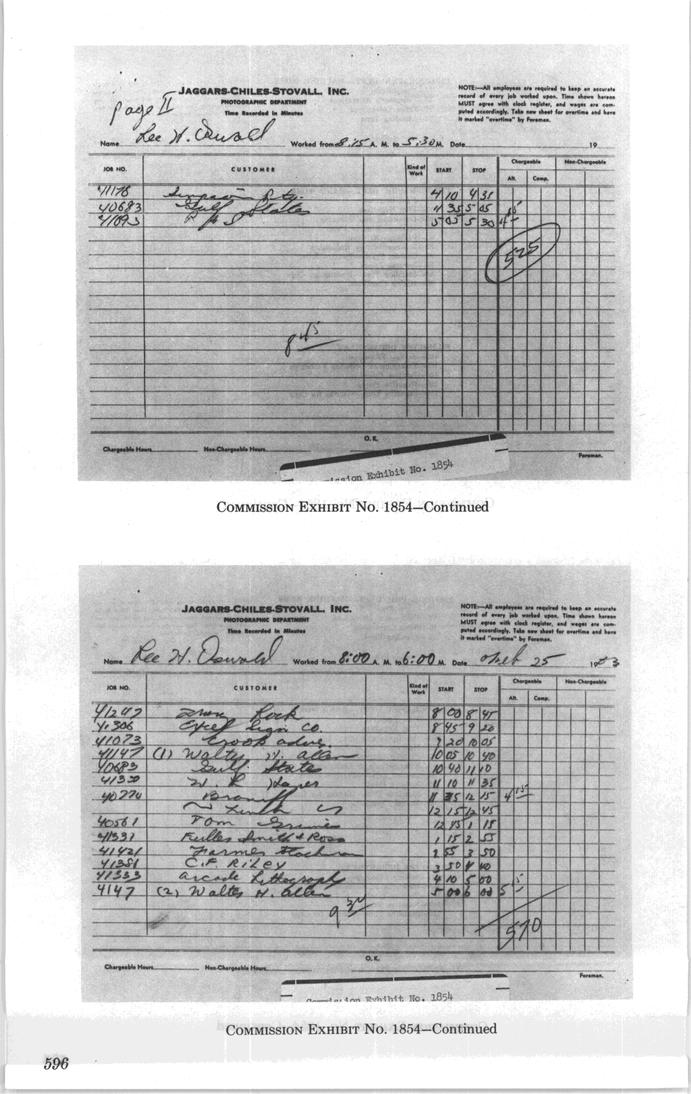 JAGGARS-CHILES-STOVALL, INC.
PHOTOGRAPHIC DEPARTMENT
Time Recorded in Minutes
NOTE:—All employees are required to keep an accurate
record of every job worked upon. Time shown hereon
MUST agree with clock register, and wages are com-
puted accordingly. Take new sheet for overtime and have
it marked "overtime" by Foreman.
Page II
Name Lee H. Oswald Worked from 8:15 A. M. to 5:30 M. Date 19
JOB NO. CUSTOMER Kind of Work START STOP Chargeable Non-Chargeable
Alt. Comp.
41178 Simpson Ptg. 4 10 4 35
40683 Gulf States 4 35 5 05
41093 5 05 5 30
525
8 45
Chargeable Hours Non-Chargeable Hours O.K. Foreman.
Commission Exhibit No. 1854
COMMISSION EXHIBIT NO. 1854—Continued
JAGGARS-CHILES-STOVALL, INC.
PHOTOGRAPHIC DEPARTMENT
Time Recorded in Minutes
NOTE:—All employees are required to keep an accurate
record of every job worked upon. Time shown hereon
MUST agree with clock register, and wages are com-
puted accordingly. Take new sheet for overtime and have
it marked "overtime" by Foreman.
Name Lee H. Oswald Worked from 8:00 A. M. to 6:00 M. Date 25 1963
JOB NO. CUSTOMER Kind of Work START STOP Chargeable Non-Chargeable
Alt. Comp.
41247 Rock 8 00 8 45
41306 Excel Sign Co. 8 45 9 20
41073 9 20 10 05
41147 (1) Walter H. Allen 10 05 10 40
40683 Gulf States 10 40 11 10
41350 11 10 11 35
40270 Braniff 11 35 12 15 4 15
~ Lunch ~ 12 15 12 45
40561 Tom Grimes 12 45 1 15
41331 Fuller Smith & Ross 1 15 2 55
41421 Farmer 2 55 3 50
41351 C.F. RILEY 3 50 4 10
41333 Arcade Lithography 4 10 5 00
4147 (2) Walter H. Allen 5 00 6 00 5 15
9 30
570
Chargeable Hours Non-Chargeable Hours O.K. Foreman.
Commission Exhibit No. 1854
COMMISSION EXHIBIT NO. 1854—Continued
596